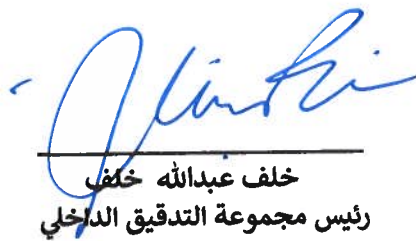 خلف عبدالله خلف
رئيس مجموعة التدقيق الداخلي